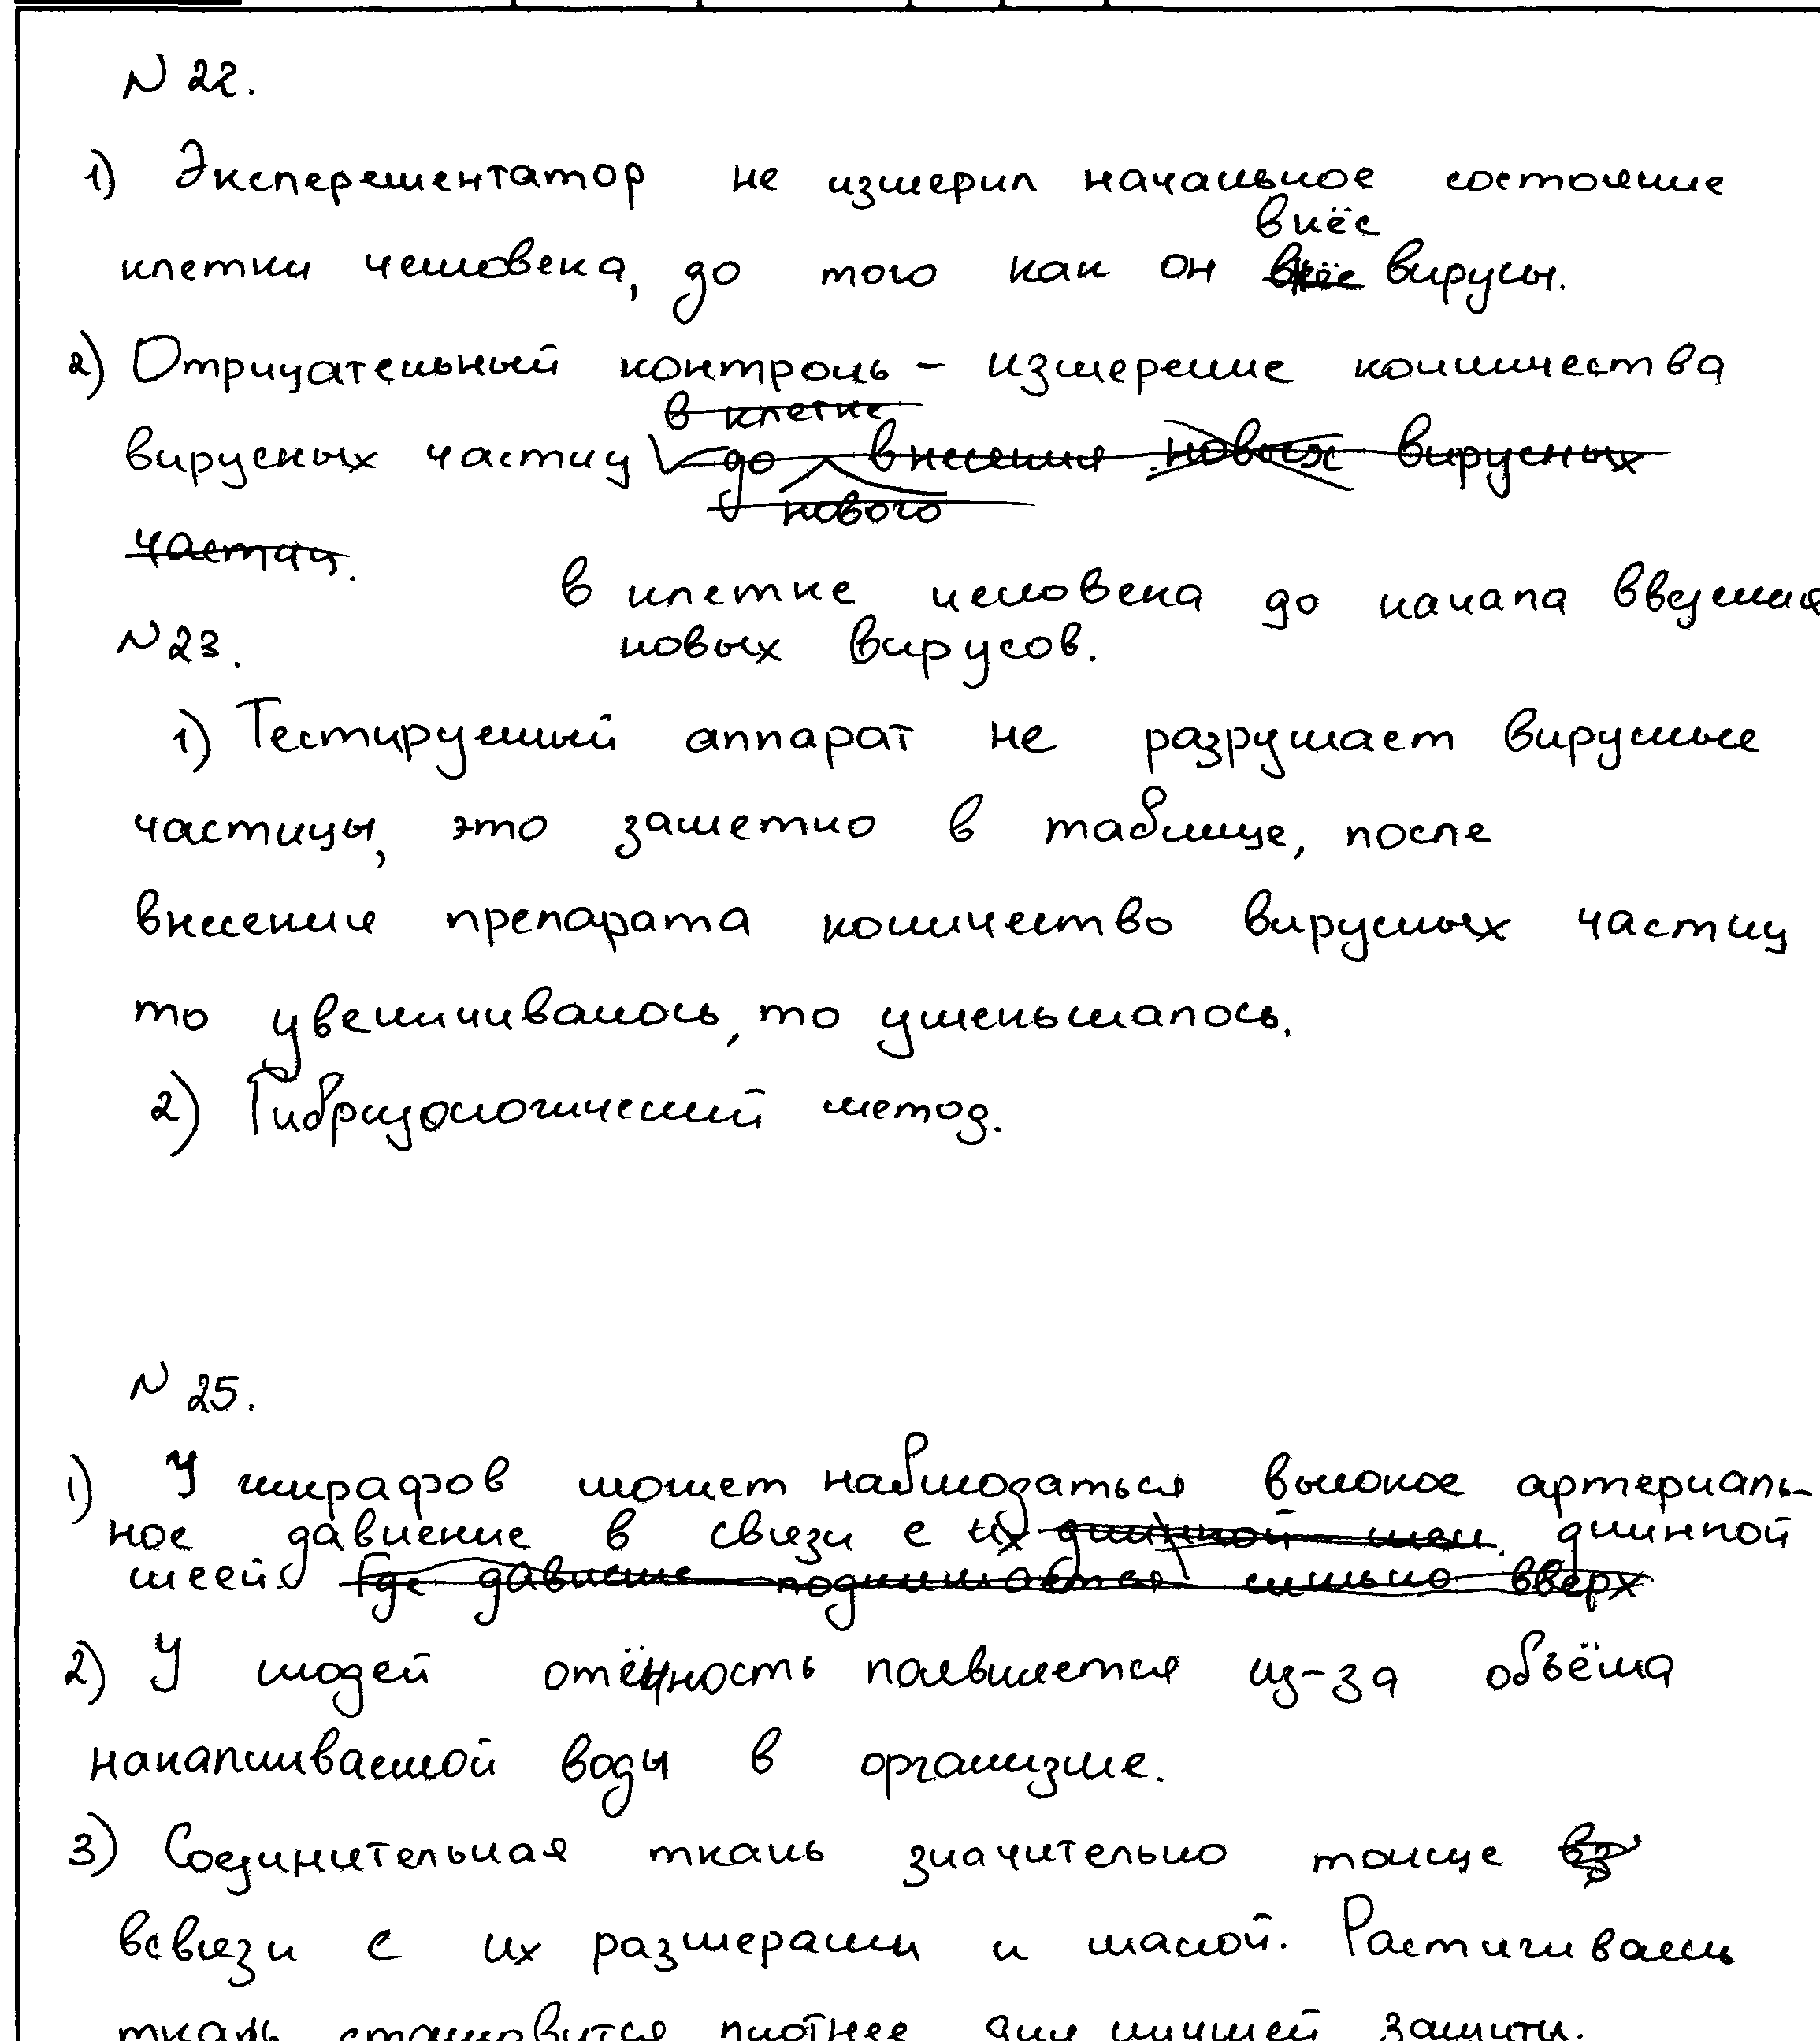 N 22.
1) Эксперементатор не измерил начальное состояние
внёс
клетки человека, до того как он внёс вирусы.
2) Отрицательный контроль – измерение количества
в клетке
вирусных частиц до внесения новых вирусных
нового
частиц.
в клетке человека до начала введения
N 23. новых вирусов.
1) Тестируемый аппарат не разрушает вирусные
частицы, это заметно в таблице, после
внесения препарата количество вирусных частиц
то увеличивалось, то уменьшалось.
2) Гибридологический метод.
N 25.
1) У жирафов может наблюдаться высокое артериаль-
ное давление в связи с их длинной шеи. длинной
шеей. Где давление поднимается сильно вверх
2) У людей отёчность появляется из-за объёма
накапливаемой воды в организме.
3) Соединительная ткань значительно толще
всвязи с их размерами и масой. Растягиваясь
ткань становится плотнее для лучшей защиты.